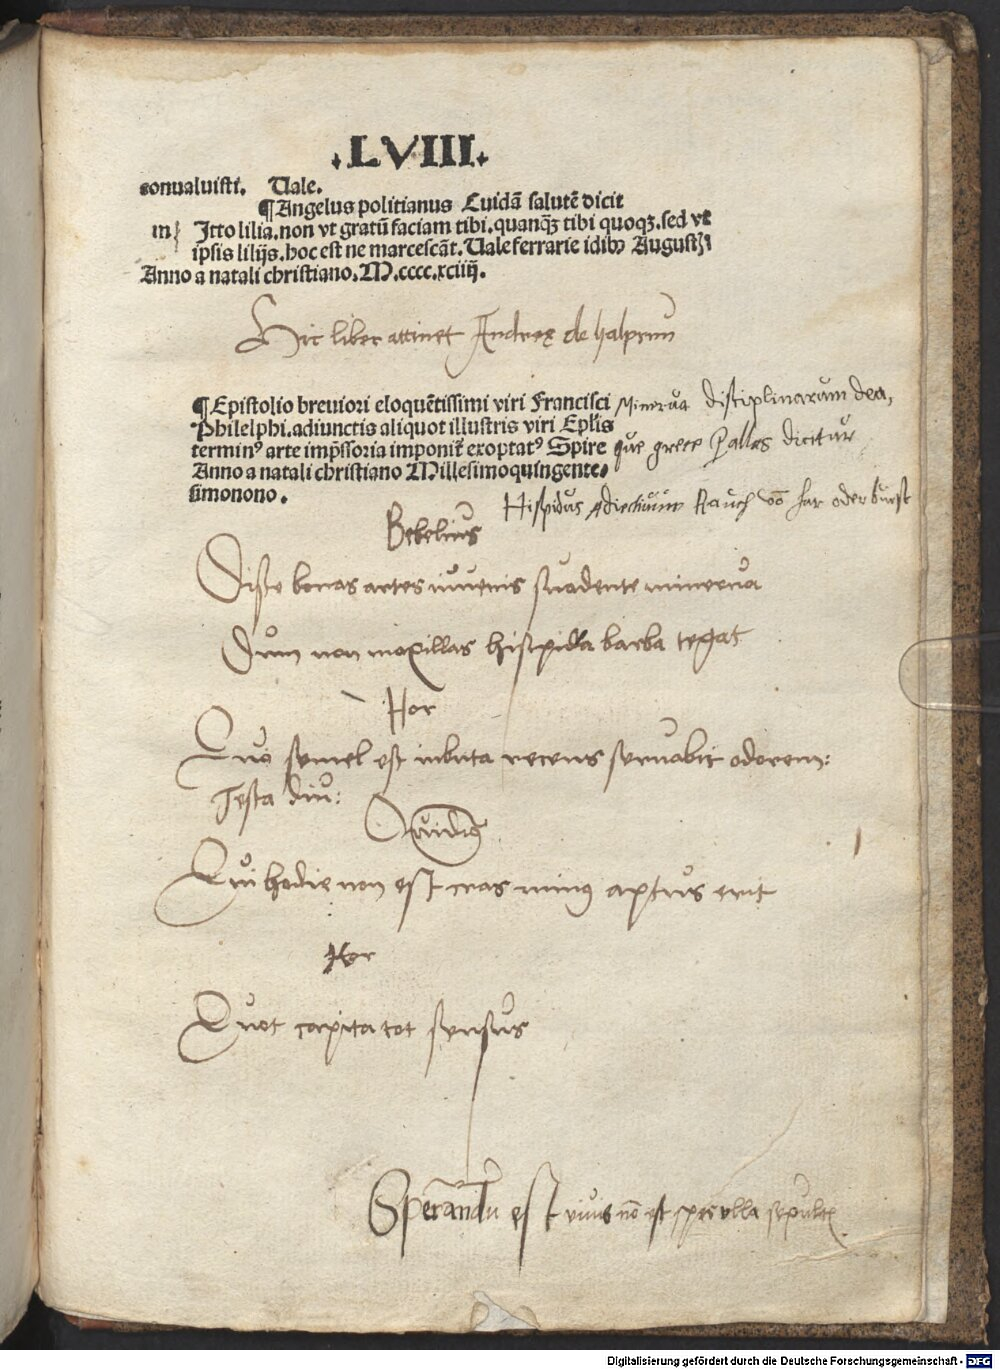 .LVIII.
conualuisti. Uale.
¶Angelus politianus Cuidã salutẽ dicit
m Itto lilia. non vt gratũ faciam tibi. quanqꝫ tibi quoqꝫ. sed vt
ipsis lilijs. hoc est ne marcescãt. Uale ferrarie idibꝰ August
Anno a natali christiano. M.cccc.xciiij.
Hic liber attinet Andreę de halprun
¶Epistolio breuiori eloquẽtissimi viri Francisci
Philelphi. adiunctis aliquot illustris viri Eplis
terminꝰ arte imp̃ssoria imponit̃ exoptatꝰ Spire
Anno a natali christiano Millesimoquingente-
simonono.
Minerua disciplinarum dea,
que grece Pallas dicitur
Hispidus adiectiuum Rauch võ har oder burst
Bebelius
Disce bonas artes iuuenis suadente minerua
Dum non maxillas hispida barba tegat
Hor
Quo semel est inbuta recens seruabit odorem:
Testa diu:
Ouidiꝰ
Qui hodie non est cras minꝰ aptus erit
Hor
Quot capita tot sensus
Sperandũ est viuis nõ est spes vlla sepultis
Digitalisierung gefördert durch die Deutsche Forschungsgemeinschaft - DFG